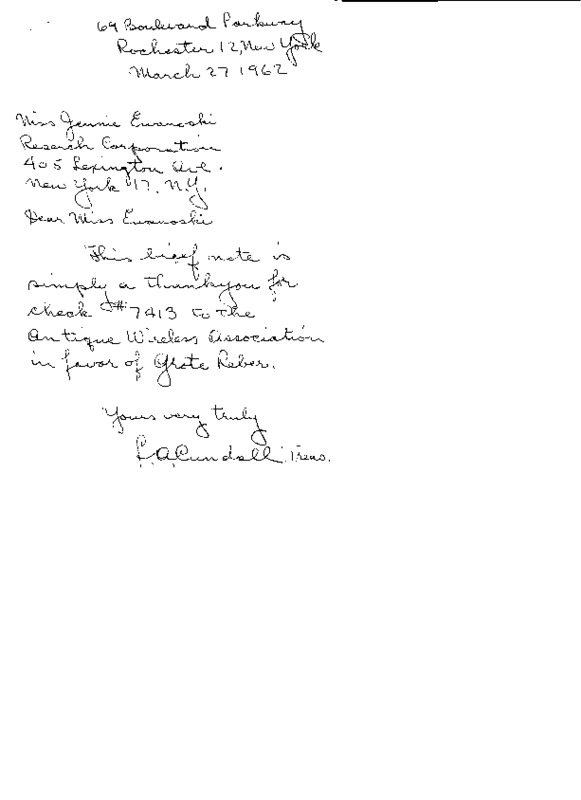 69 Boulevard Parkway
Rochester 12, New York
March 27 1962
Miss Jennie Ewanoski
Research Corporation
405 Lexington Ave.
New York 17, N.Y.
Dear Miss Ewanoski
This brief note is
simply a thankyou for
check # 7413 to the
Antique Wireless Association
in favor of Grote Reber.
Yours very truly
L A Cundall Treas.